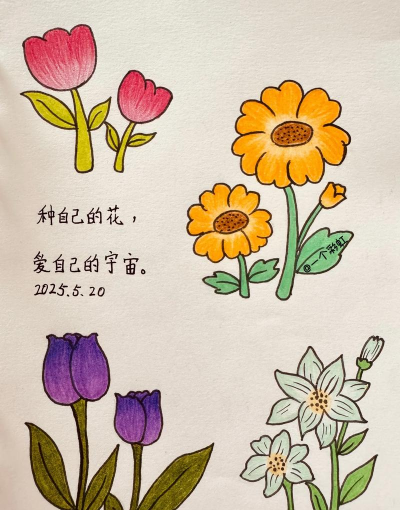 种自己的花，
爱自己的宇宙。
2025.5.20
@一个彩虹